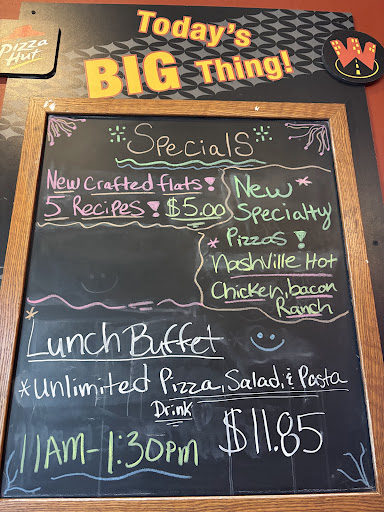 Pizza Hut
Today's
BIG Thing!
Specials
New Crafted flats!
5 Recipes! $5.00
New
Specialty
Pizzas!
Nashville Hot
Chicken, bacon
Ranch
Lunch Buffet
*Unlimited Pizza, Salad, & Pasta
Drink
$11.85
11AM-1:30PM